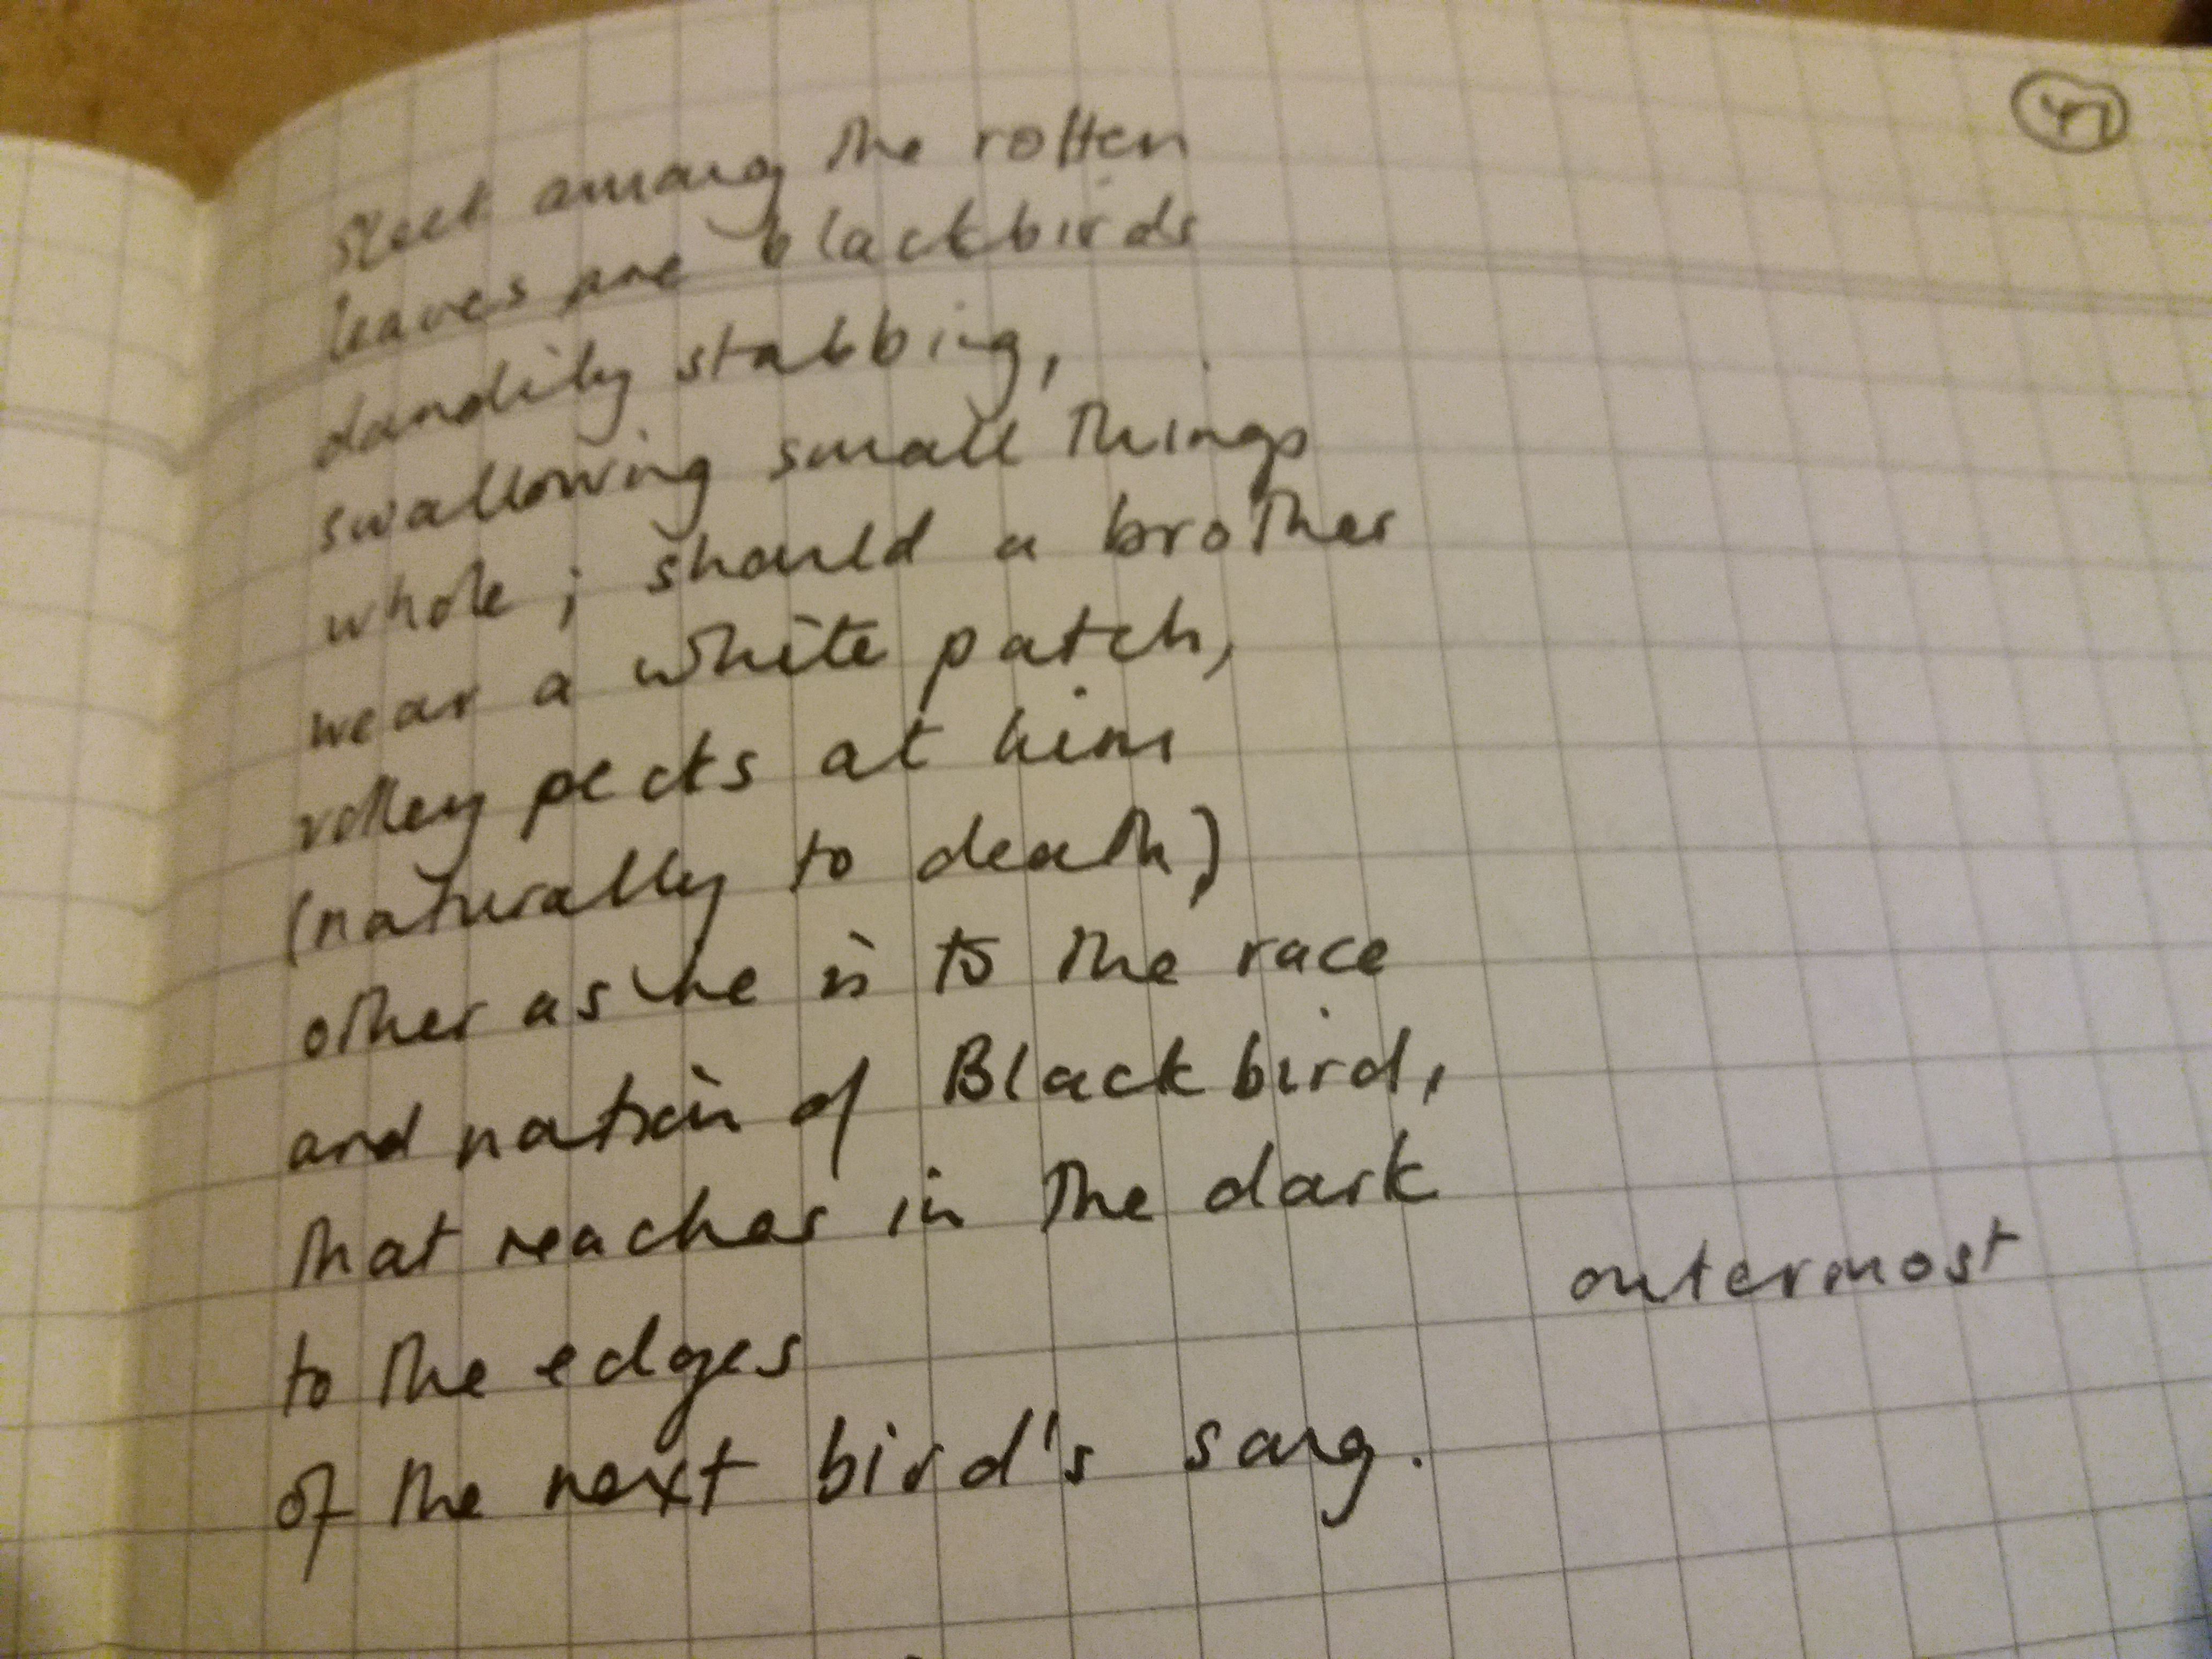 47
Sleek among the rotten
leaves are blackbirds
dandily stabbing,
swallowing small things
whole; should a brother
wear a white patch,
volley pecks at him
(naturally to death)
other as he is to the race
and nation of Blackbird,
that reaches in the dark
outermost
to the edges
of the next bird's song.